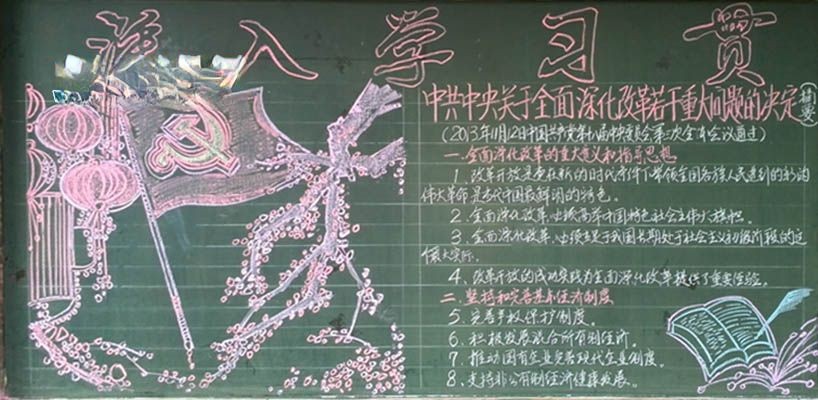 深入学习贯
中共中央关于全面深化改革若干重大问题的决定(摘要)
(2013年11月12日中国共产党第十八届中央委员会第三次全体会议通过)
一.全面深化改革的重大意义和指导思想
1.改革开放是党在新的时代条件下带领全国各族人民进行的新的
伟大革命是当代中国最鲜明的特色。
2.全面深化改革,必须高举中国特色社会主义伟大旗帜。
3.全面深化改革.必须立足于我国长期处于社会主义初级阶段的这
个最大实际.
4、改革开放的成功实践为全面深化改革提供了重要经验。
二.坚持和完善基本经济制度
5.完善产权保护制度。
6.积极发展混合所有制经济.
7.推动国有企业完善现代企业制度。
8.支持非公有制经济健康发展。